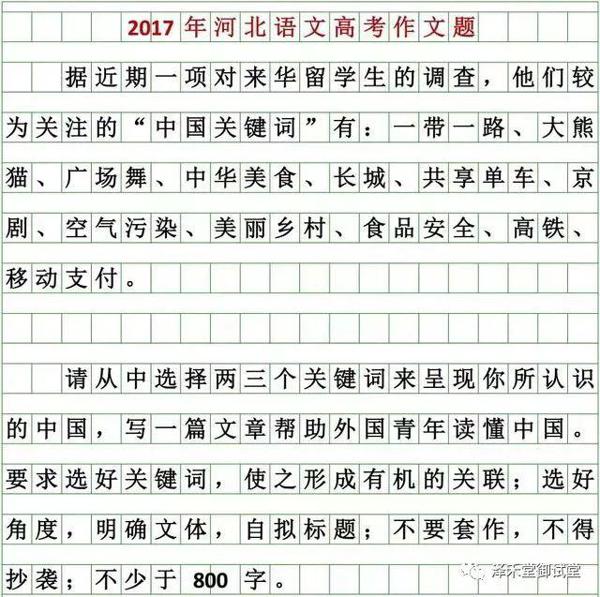 2017年河北语文高考作文题
据近期一项对来华留学生的调查，他们较
为关注的“中国关键词”有：一带一路、大熊
猫、广场舞、中华美食、长城、共享单车、京
剧、空气污染、美丽乡村、食品安全、高铁、
移动支付。
请从中选择两三个关键词来呈现你所认识
的中国，写一篇文章帮助外国青年读懂中国。
要求选好关键词，使之形成有机的关联；选好
角度，明确文体，自拟标题；不要套作，不得
抄袭；不少于 800 字。
泽禾堂御试堂